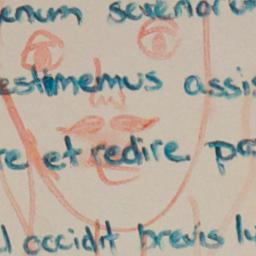 enum severioru
estimemus assis
re et redire pos
l occidit brevis lu